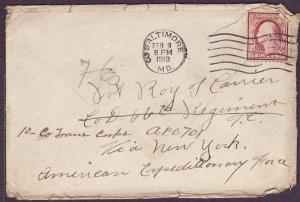 BALTIMORE
FEB 9
8 PM
1919
MD.
Roy Carrier
Co D. 66th Regiment
T.C.
10-Co Trans Corps APO 701
Via New York.
American Expeditionary Force